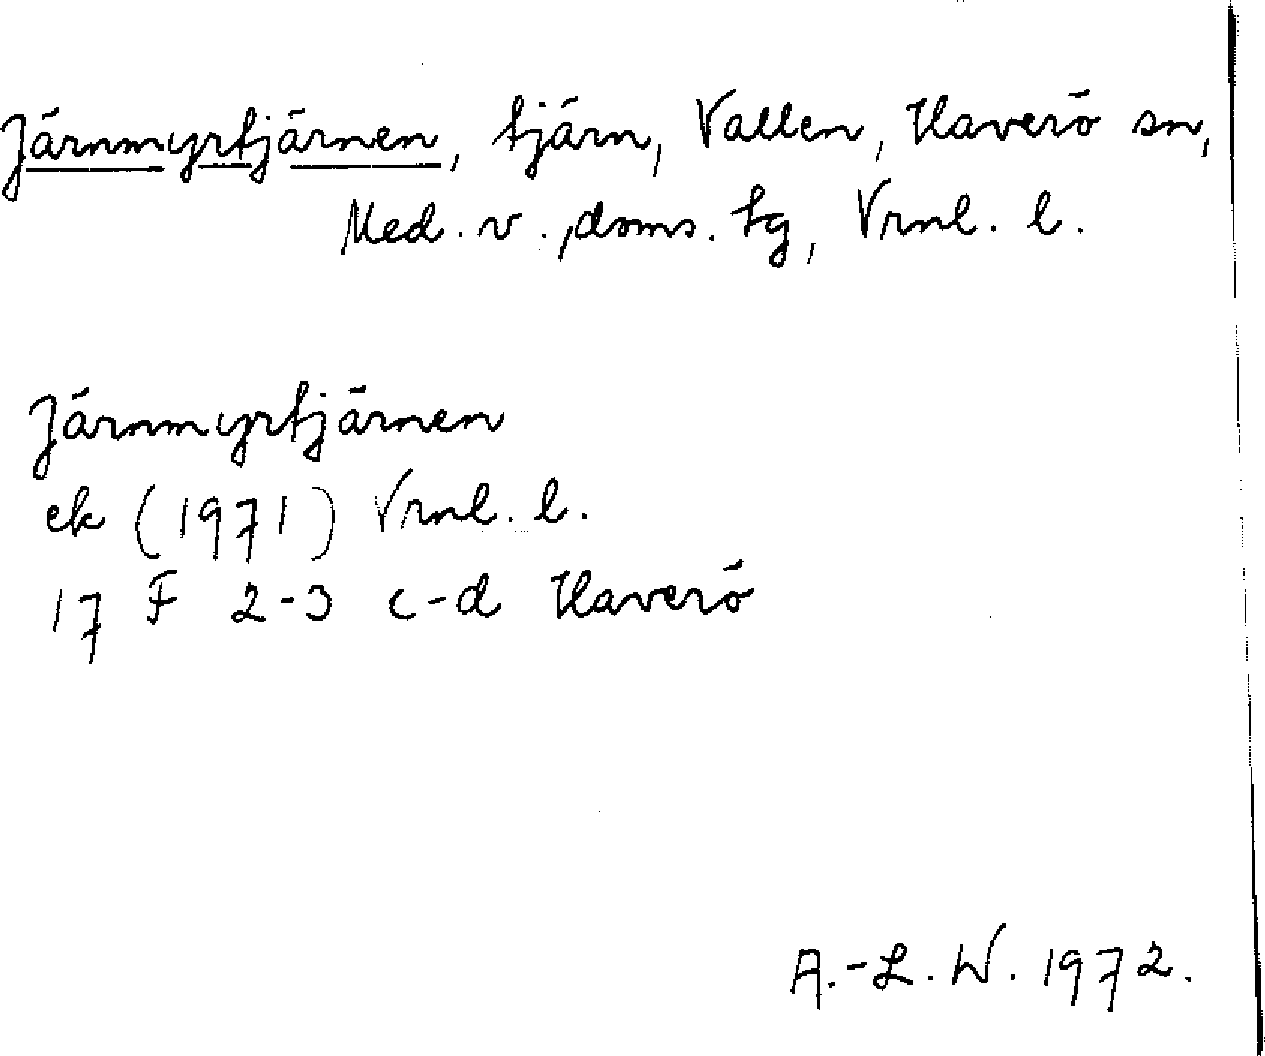 Järnmyrtjärnen, tjärn, Vallen, Haverö sn,
Med. v., doms. tg, Vrnl. l.
Järnmyrtjärnen
ek (1971) Vrnl. l.
17 F 2-3 c-d Haverö
A.-L. W. 1972.